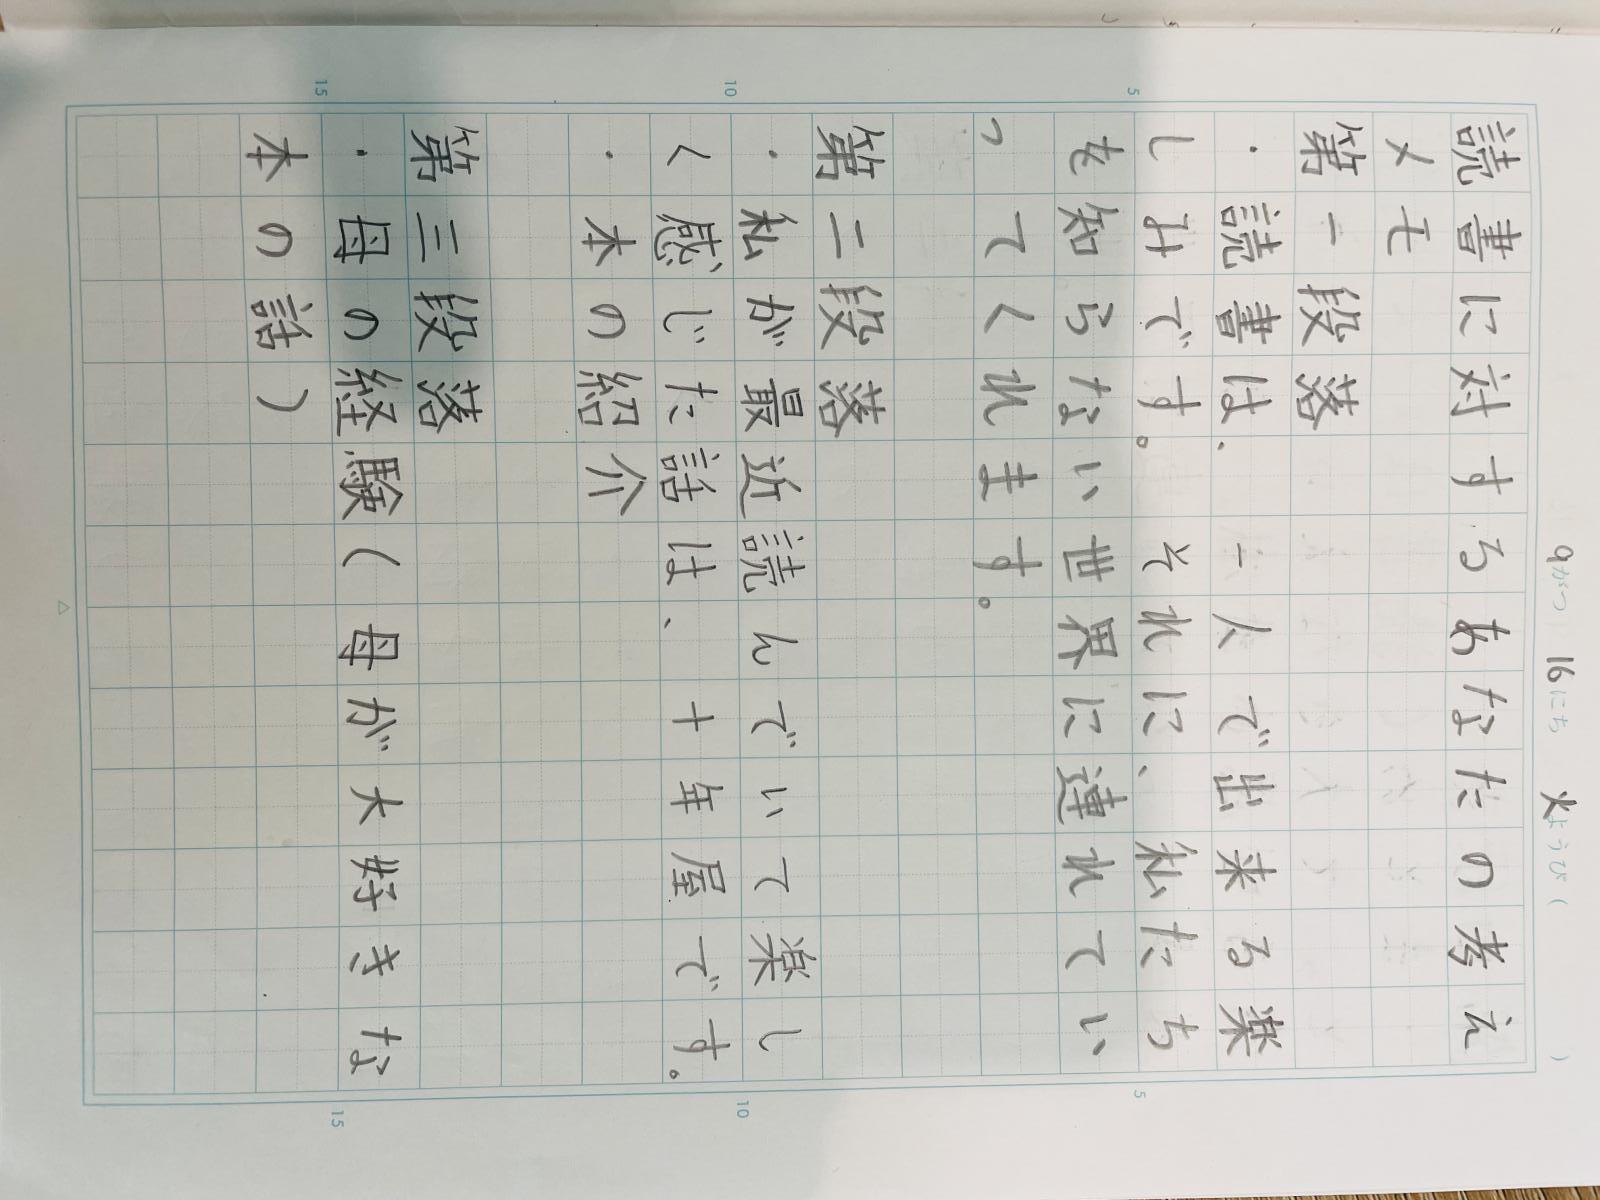 9がつ 16にち 火ようび( )
読書に対するあなたの考え
メモ
第一段落
・読書は、一人で出来る楽
しみです。それに、私たち
を知らない世界に連れてい
ってくれます。
第二段落
・私が最近読んでいて楽し
く感じた話は、十年屋です。
・本の紹介
第三段落
・母の経験(母が大好きな
本の話)
5
10
15
5
10
15